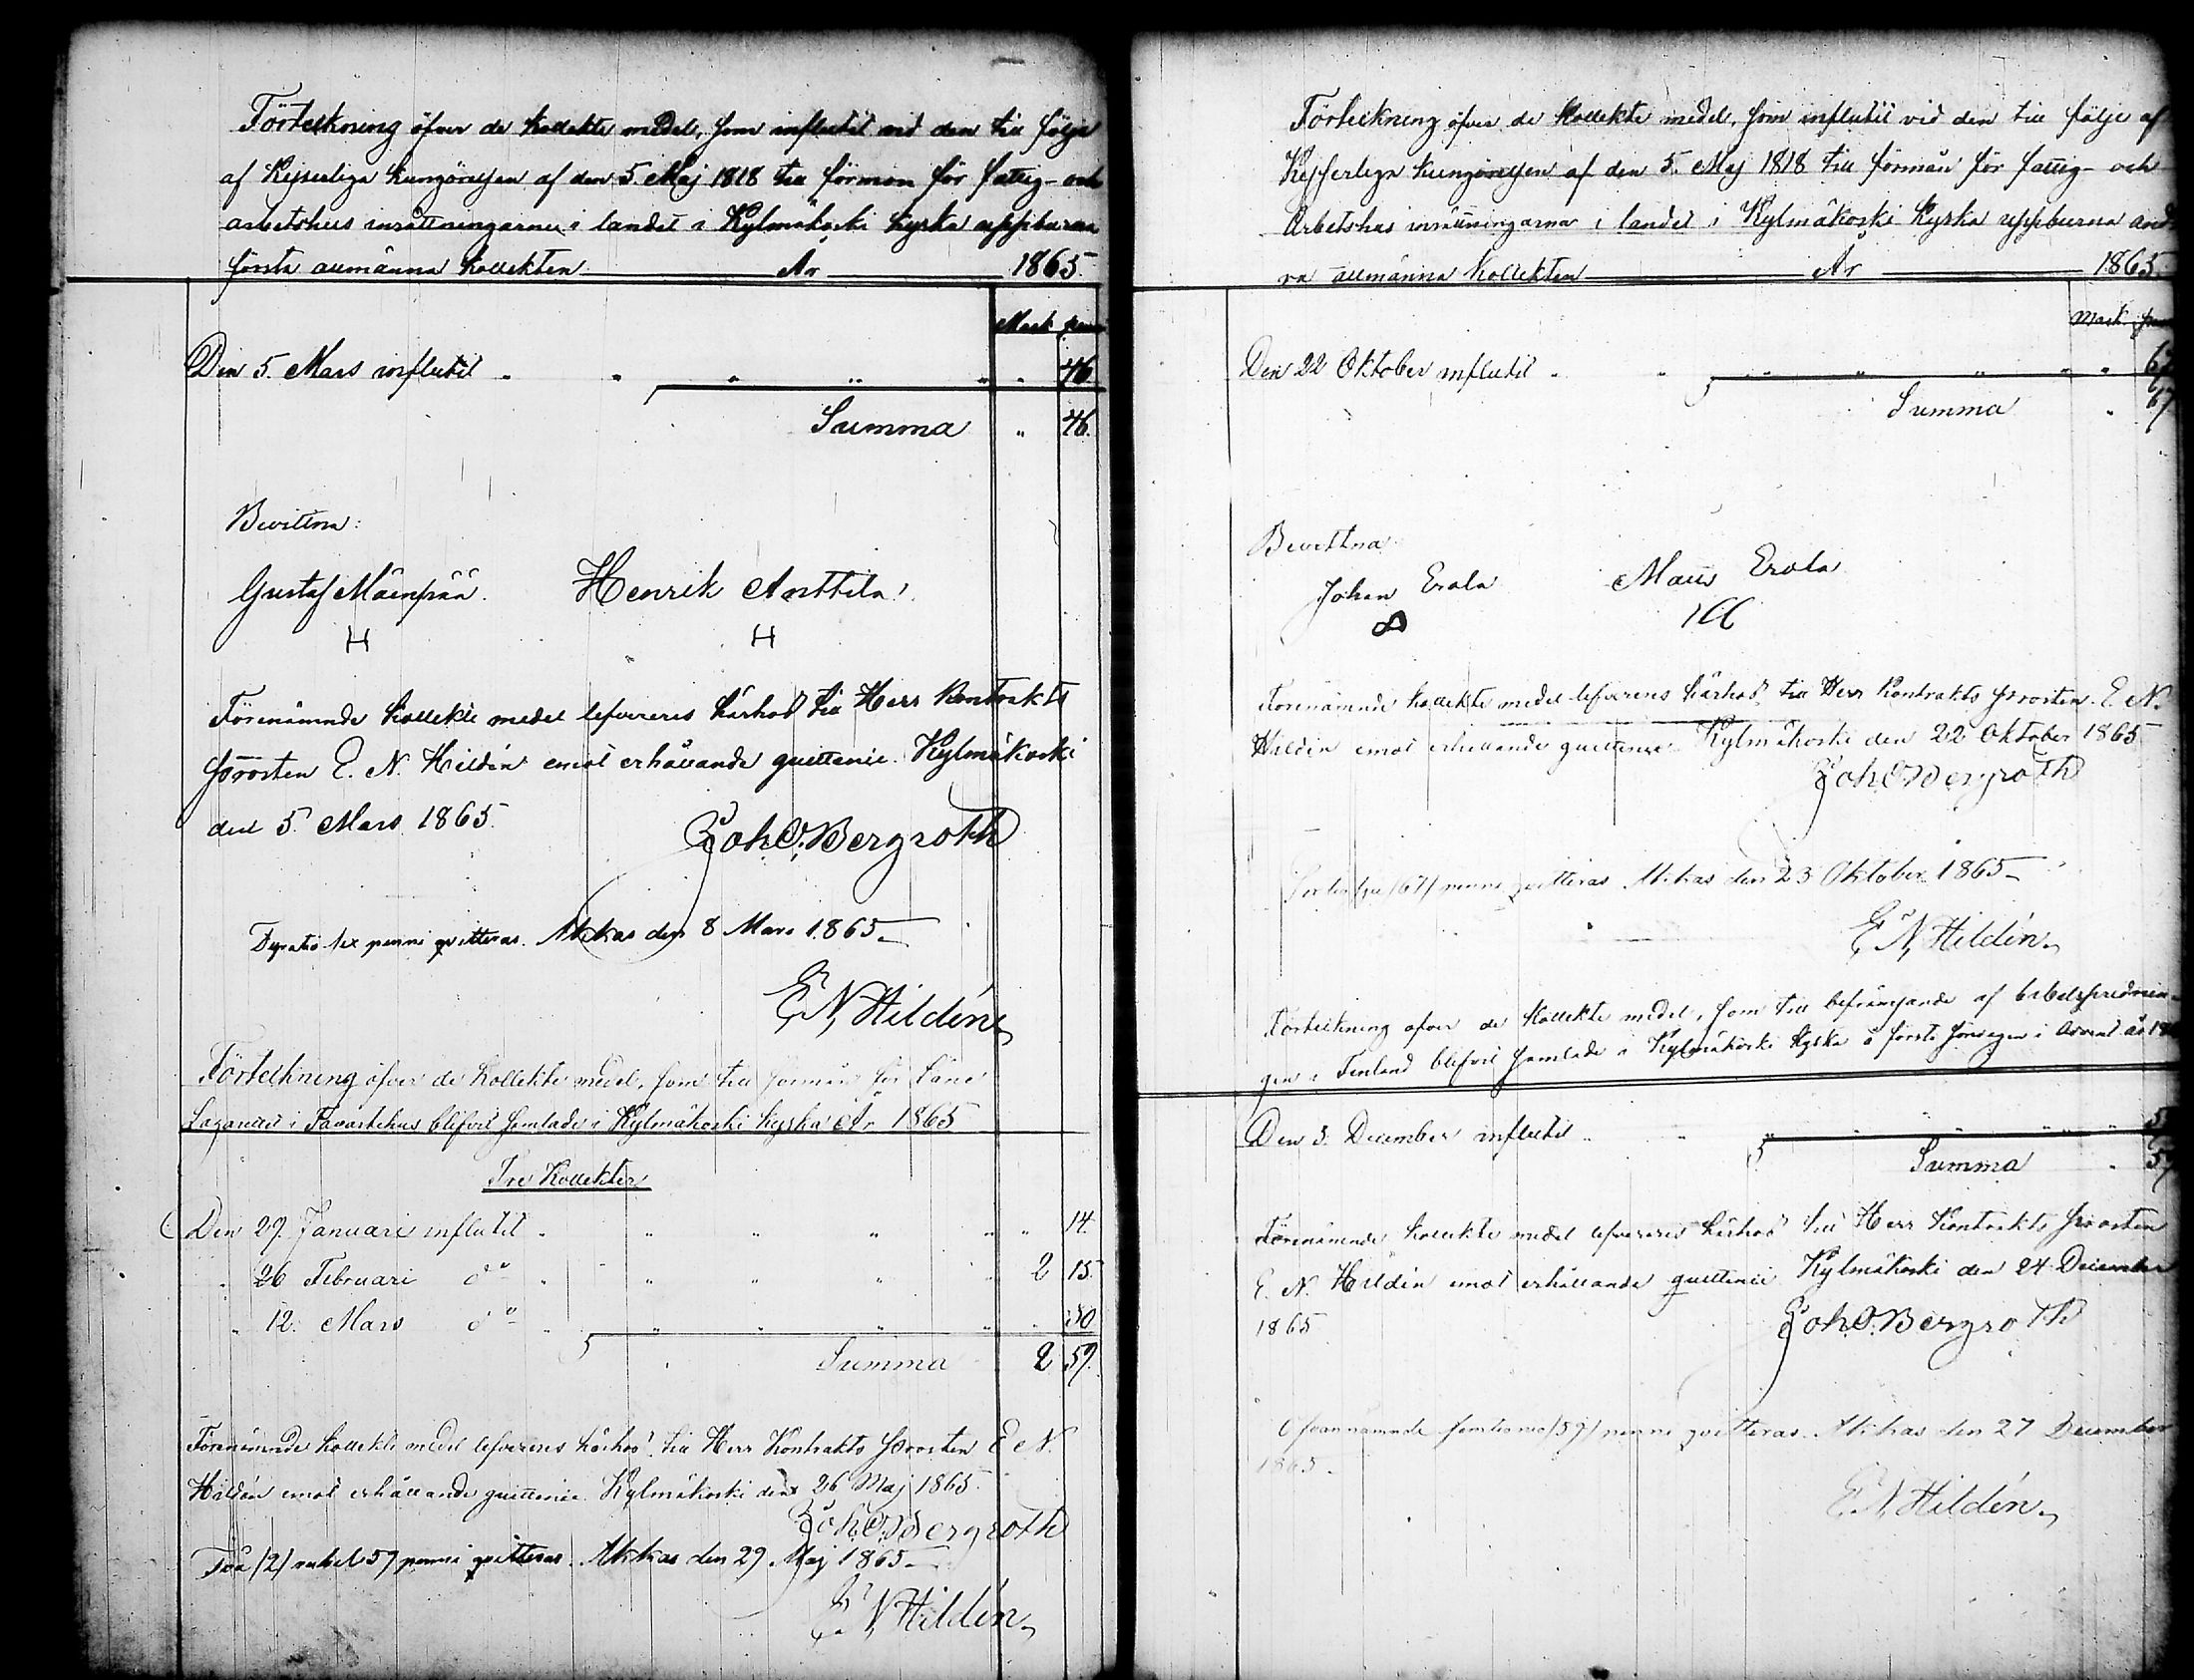 Förteckning öfver de kollekte medel, som influtit vid den till följe
af Kejserliga kungörelsen af den 5. Maj 1818 till förmon för fattig- och
arbetshus inrättningarne i landet i Kylmäkoski kyrka uppburna
första allmänna kollekten År 1865.
Mark penni
Den 5. Mars influtit " " " " " " 46
Summa " 46.
Bevittna:
Gustaf Mäenpää. Henrik Anttila.
H H
Förenämnde kollekte medel lefvereras härhos till Herr Kontrakts
Prosten E. N. Hildén emot erhållande quittence. Kylmäkoski
den 5. Mars 1865.
Joh. O. Bergroth
Fyratio sex penni qvitteras. Akkas den 8 Mars 1865.
E. N. Hildén.
Förteckning öfver de kollekte medel, som till förmån för Läns
Lazarettet i Tavastehus blifvit samlade i Kylmäkoski kyrka År 1865
Tre Kollekter
Den 29. Januari influtit " " " " " " 14.
" 26 Februari do " " " " " 2 15.
" 12. Mars do " " " " " " 30
Summa 2 59.
Förenämnde kollekte medel lefvereras härhos till Herr Kontrakts Prosten E. N.
Hildén emot erhållande quittence. Kylmäkoski den 26 Maj 1865.
Joh. O. Bergroth
Två /2/ mk 59 penni qvitteras. Akkas den 29. Maj 1865.
E. N. Hildén.
Förteckning öfver de kollekte medel, som influtit vid den till följe af
Kejserliga kungörelsen af den 5. Maj 1818 till förmån för fattig- och
Arbetshus inrättningarna i landet i Kylmäkoski kyrka uppburna and-
ra allmänna kollekten År 1865.
Mark penni
Den 22 Oktober influtit " " " " " " " 67
Summa " 67
Bevittna
Johan Erola Matts Erola
Förenämnde kollekte medel lefvereras härhos till Herr Kontrakts Prosten E. N.
Hildén emot erhållande quittence. Kylmäkoski den 22 Oktober 1865
Joh. O. Bergroth
Sextiosju /67/ penni qvitteras. Akkas den 23 Oktober 1865
E. N. Hildén.
Förteckning öfver de kollekte medel, som till befrämjande af bibelspridnin-
gen i Finland blifvit samlade i Kylmäkoski kyrka å första söndagen i Advent år
Den 3. December influtit " " " " " " "
Summa " 59
Förenämnde kollekte medel lefvereras härhos till Herr Kontrakts Prosten
E. N. Hildén emot erhållande quittence Kylmäkoski den 24 December
1865
Joh. O. Bergroth
Ofvannämnde femtionio /59/ penni qvitteras. Akkas den 27 December
1865.
E. N. Hildén.